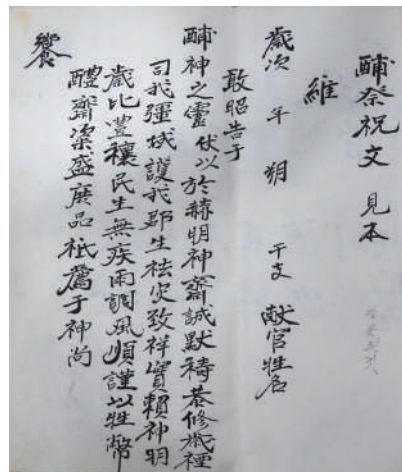 酺祭祝文 見本
維
歲次 年 朔 干支 献官姓名
敢昭告于
酺神之靈 伏以於赫明神齋誠默禱恭修
司我疆域護我郡生祛灾致祥實賴神明
歲比豐穰民生無疾雨調風順謹以牲幣
醴齋粢盛庶品祗薦于神尚
饗